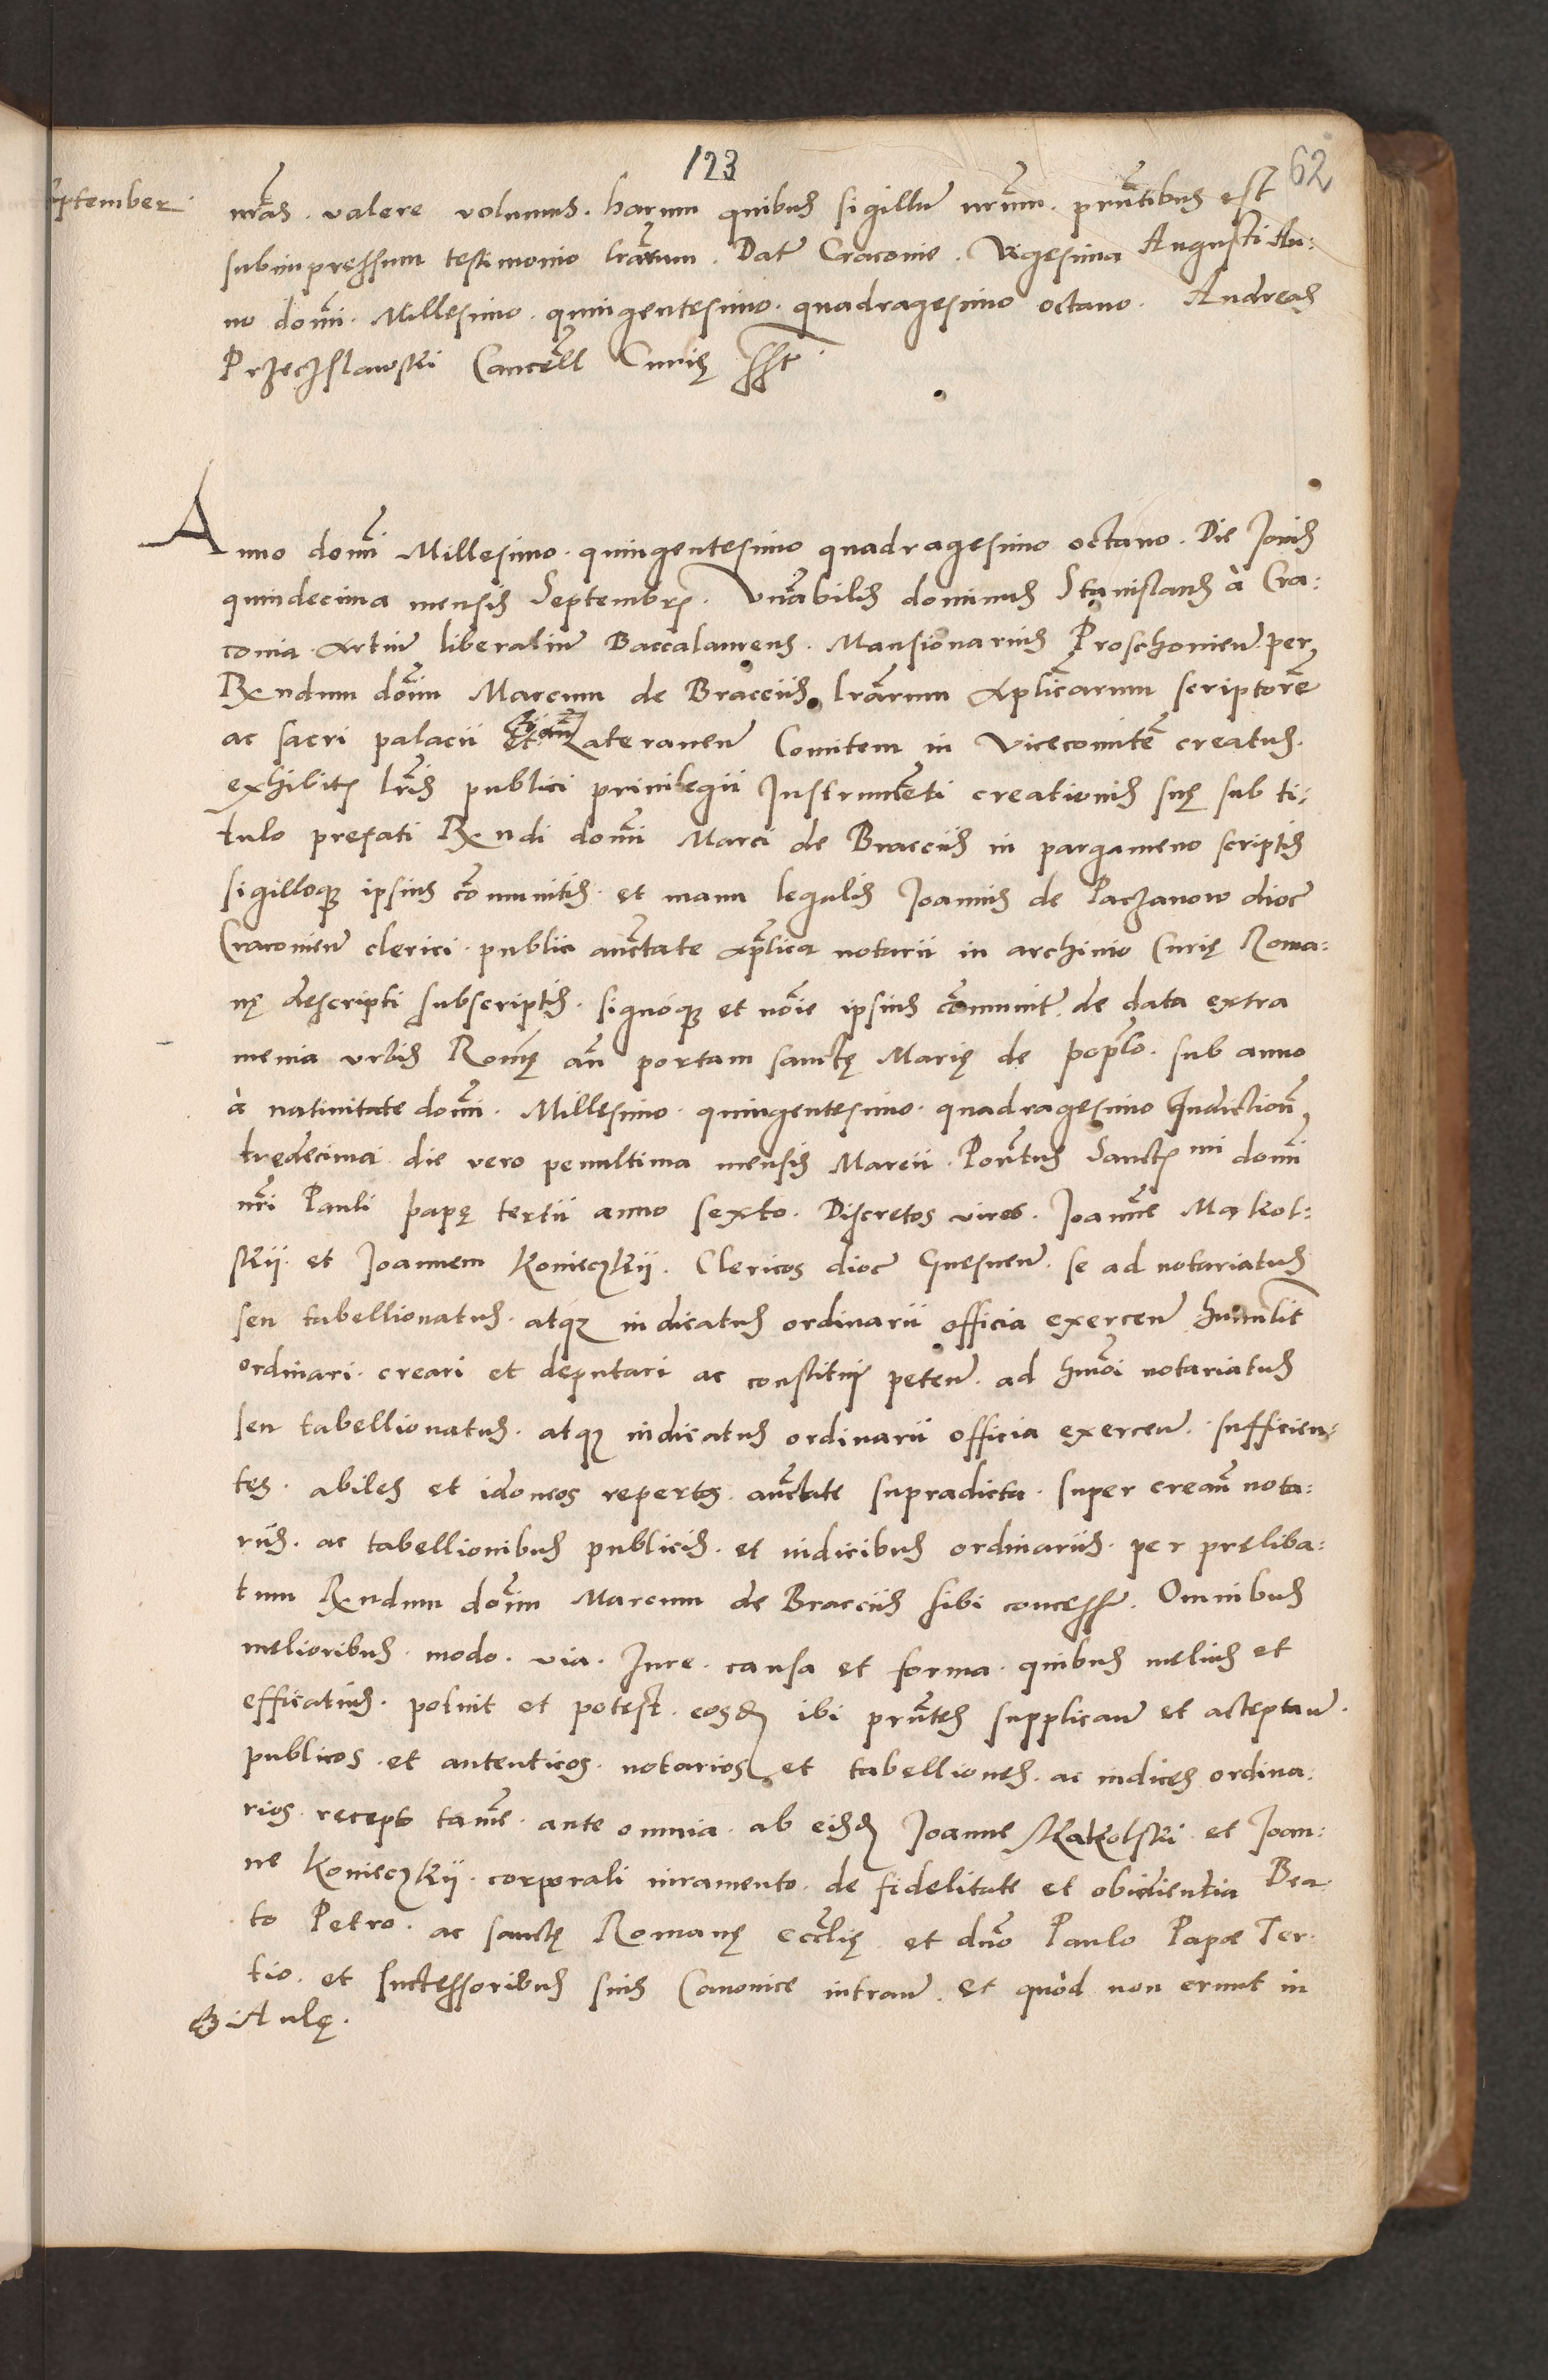 123
62
ptember
nras. valere volumus. harum quibus sigillū nrum. pruntibus est
subimpressum testimonio lrarum. Dat Cracovie. Vigesima Augusti An:
no domi. Millesimo. quingentesimo. quadragesimo octavo. Andreas
Przeczslawski Cancell Curię sst
Anno domi Millesimo. quingentesimo quadragesimo octavo. Die Jovis
quindecima mensis Septembrs. Vnrabilis dominus Stanislaus à Cra:
covia Artiū liberaliū Baccalaureus. Mansionarius Proschovien per
Rndum doim Marcum de Bracciis lrarum Aplicarum scriptorē
ac sacri palacii et Lateranen Comitem in Vicecomitē creatus.
exhibitis lris publici privilegii Instrumēti creationis suę sub ti:
tulo prefati Rndi domi Marci de Bracciis in pargameno scriptis
sigilloque ipsius comunitis. et manu legalis Joannis de Paczanow dioc
Cracovien clerici. public auctate aplica notarii in archivio Curię Roma:
nę descripti subscriptis. signoque et noie ipsius comunit. de data extra
menia urbis Romę an portam sanctę Marię de poplo. sub anno
à nativitate domi. Millesimo. quingentesimo. quadragesimo Indiction
tredecima die vero penultima mensis Marcii. Pontus Sanctis mi domi
nri Pauli papę tertii anno sexto. Discretos viros. Joannē Makol:
skii. et Joannem Konieczkii. Clericos dioc Gnesnen. se ad notariatus
seu tabellionatus. atque iudicatus ordinarii officia exercen humilit
ordinari. creari et deputari ac constitui peten. ad hmoi notariatus
seu tabellionatus. atque iudicatus ordinarii officia exercen. sufficien:
tes. abiles et idoneos repertos. auctate supradicta. super crean nota:
riis. ac tabellionibus publicis. et iudicibus ordinariis. per pręliba:
tum Rndum doim Marcum de Bracciis sibi concess. Omnibus
melioribus. modo. via. Iure. causa et forma. quibus melius et
efficatius. potuit et potest. eosd ibi prntes supplican et acceptan.
publicos. et autenticos. notarios et tabelliones. ac iudices ordina:
rios. recepto tamē. ante omnia. ab eisd Joanne Makolski. et Joan:
ne Konieczkii. corporali iuramento. de fidelitate et obidientia Bea:
to Petro. ac sanctę Romanę ecclię et dno Paulo Papæ Ter:
tio. et successoribus suis Canonice intran. et quòd non erunt in
Aulę.